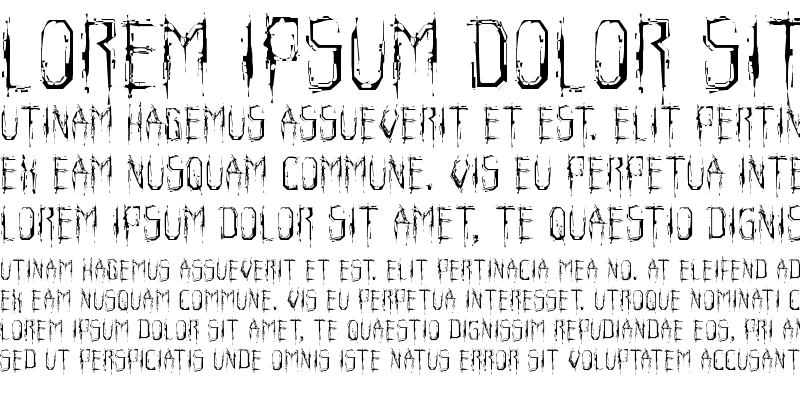 LOREM IPSUM DOLOR SIT
UTINAM HAGEMUS ASSUEVERIT ET EST. ELIT PERTIN
EX EAM NUSQUAM COMMUNE. VIS EU PERPETUA INTE
LOREM IPSUM DOLOR SIT AMET, TE QUAESTIO DIGNIS
UTINAM HAGEMUS ASSUEVERIT ET EST. ELIT PERTINACIA MEA NO. AT ELEIFEND AD
EX EAM NUSQUAM COMMUNE. VIS EU PERPETUA INTERESSET. UTROQUE NOMINATI C
LOREM IPSUM DOLOR SIT AMET, TE QUAESTIO DIGNISSIM REPUDIANDAE EOS, PRI AN
SED UT PERSPICIATIS UNDE OMNIS ISTE NATUS ERROR SIT VOLUPTATEM ACCUSANT